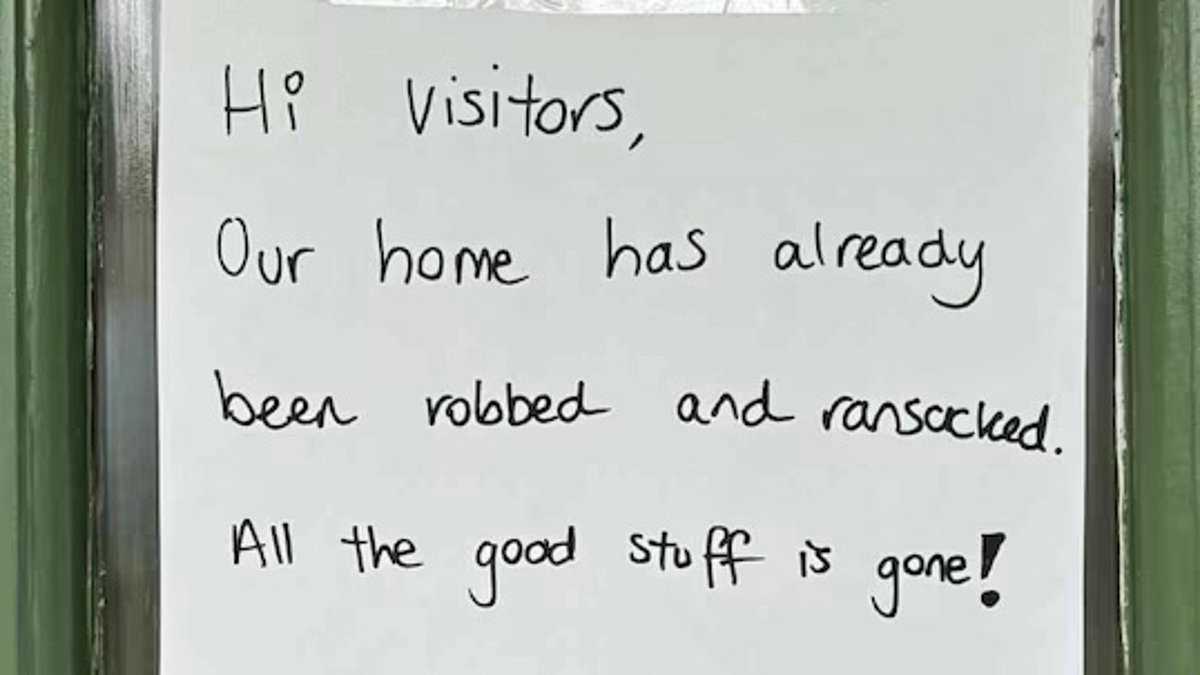 Hi visitors,
Our home has already
been robbed and ransacked.
All the good stuff is gone!